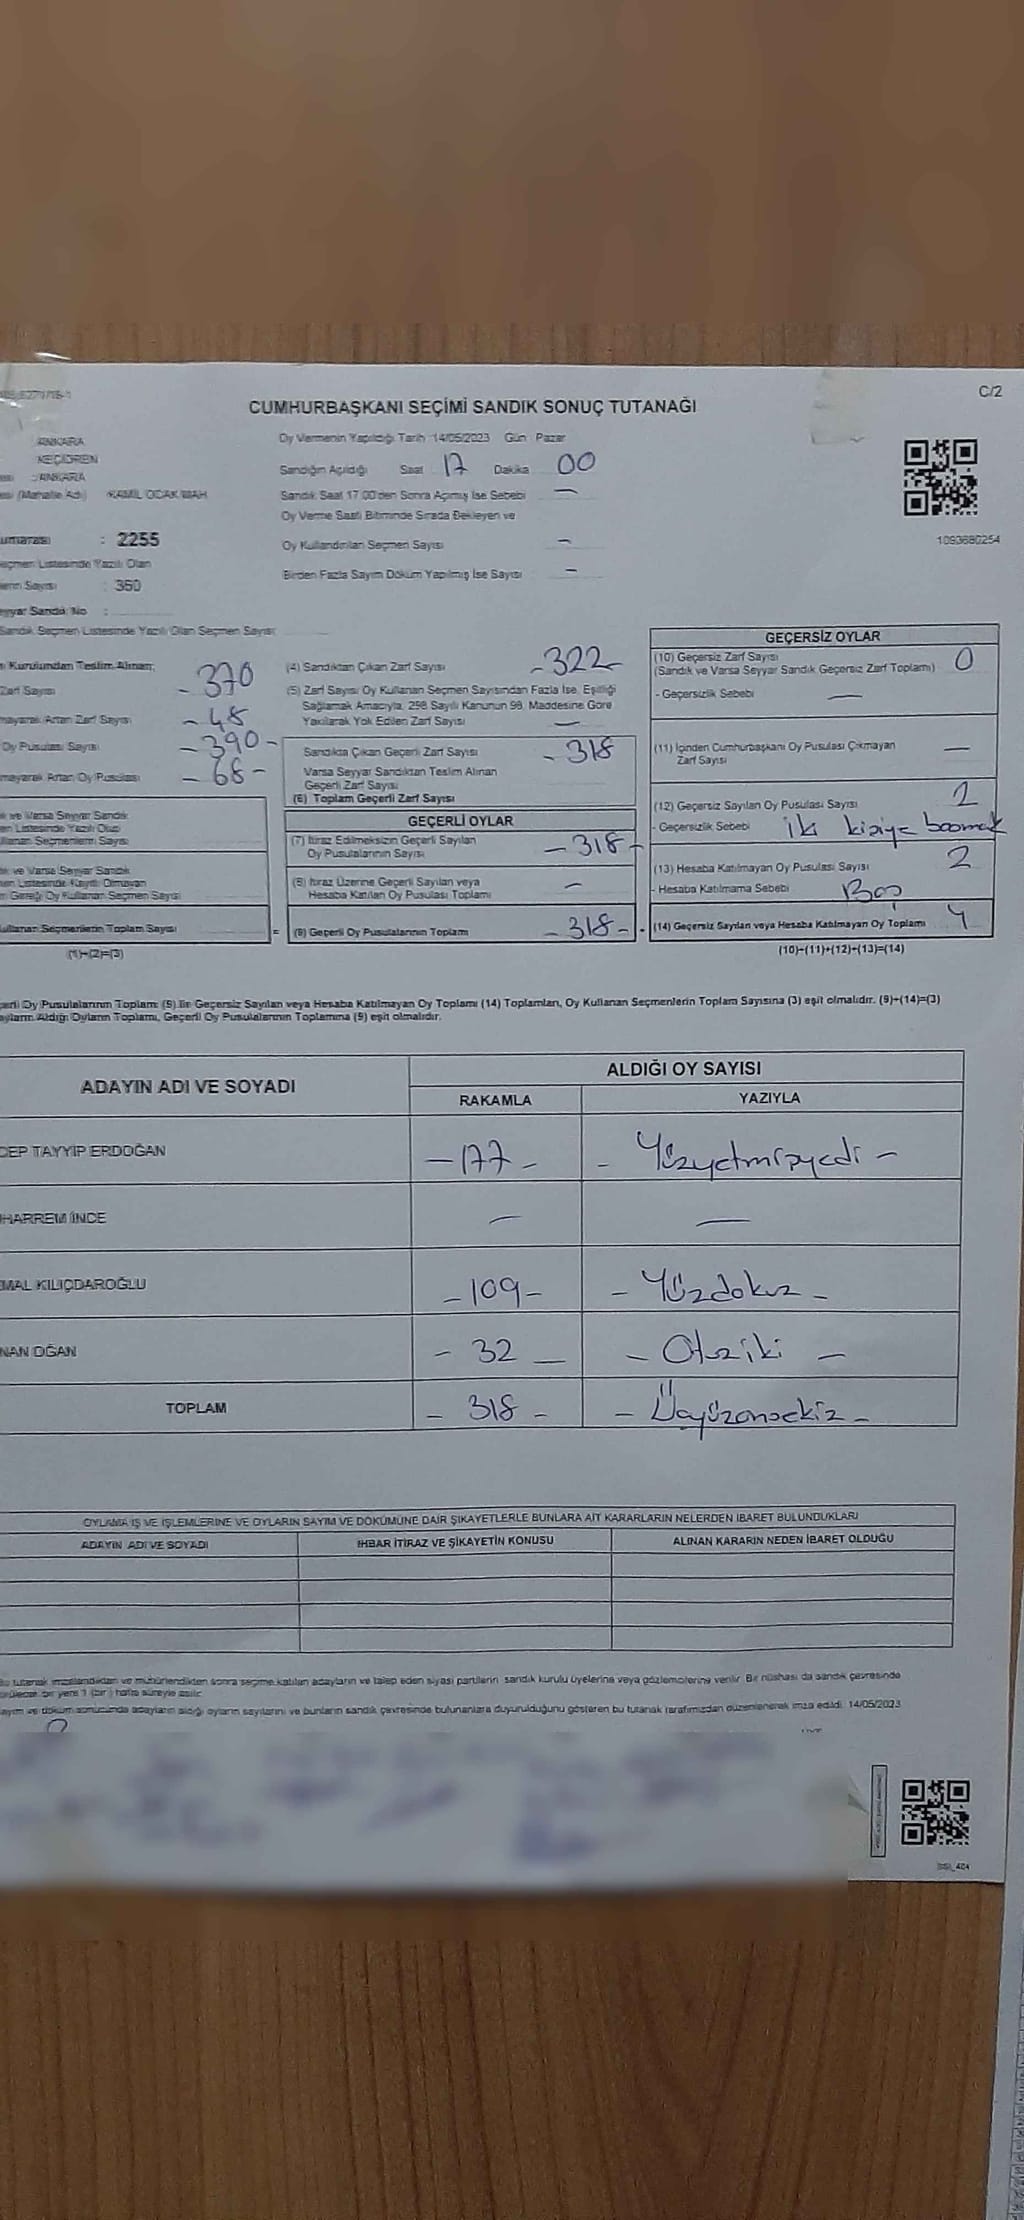 C/2
CUMHURBAŞKANI SEÇİMİ SANDIK SONUÇ TUTANAĞI
ANKARA
KEÇİÖREN
ANKARA
(Mahalle Adı) KAMİL OCAK MAH
Oy Vermenin Yapıldığı Tarih :14/05/2023 Gün Pazar
Sandığın Açıldığı Saat 17 Dakika 00
Sandık Saat 17.00'den Sonra Açılmış İse Sebebi —
Oy Verme Saati Bitiminde Sırada Bekleyen ve
Oy Kullandırılan Seçmen Sayısı —
Birden Fazla Sayım Döküm Yapılmış İse Sayısı —
1093680254
umarası : 2255
eçmen Listesinde Yazılı Olan
Sayısı : 360
eyyar Sandık No :
Sandık Seçmen Listesinde Yazılı Olan Seçmen Sayısı
Kurulundan Teslim Alınan;
Zarf Sayısı - 370
mayarak Artan Zarf Sayısı - 48
Oy Pusulası Sayısı - 390 -
mayarak Artan Oy Pusulası - 68 -
ve Varsa Seyyar Sandık
en Listesinde Yazılı Olup
llanan Seçmenlerin Sayısı
ve Varsa Seyyar Sandık
en Listesinde Kayıtlı Olmayan
Gereği Oy Kullanan Seçmen Sayısı
ullanan Seçmenlerin Toplam Sayısı =
(1)+(2)=(3)
(4) Sandıktan Çıkan Zarf Sayısı - 322 -
(5) Zarf Sayısı Oy Kullanan Seçmen Sayısından Fazla İse, Eşitliği
Sağlamak Amacıyla, 298 Sayılı Kanunun 98. Maddesine Göre
Yakılarak Yok Edilen Zarf Sayısı —
Sandıkta Çıkan Geçerli Zarf Sayısı - 318
Varsa Seyyar Sandıktan Teslim Alınan
Geçerli Zarf Sayısı
(6) Toplam Geçerli Zarf Sayısı
GEÇERLİ OYLAR
(7) İtiraz Edilmeksizin Geçerli Sayılan
Oy Pusulalarının Sayısı - 318 -
(8) İtiraz Üzerine Geçerli Sayılan veya
Hesaba Katılan Oy Pusulası Toplamı —
(9) Geçerli Oy Pusulalarının Toplamı - 318 -
GEÇERSİZ OYLAR
(10) Geçersiz Zarf Sayısı
(Sandık ve Varsa Seyyar Sandık Geçersiz Zarf Toplamı) 0
- Geçersizlik Sebebi —
(11) İçinden Cumhurbaşkanı Oy Pusulası Çıkmayan
Zarf Sayısı —
(12) Geçersiz Sayılan Oy Pusulası Sayısı 2
- Geçersizlik Sebebi iki kişiye basmak
(13) Hesaba Katılmayan Oy Pusulası Sayısı 2
- Hesaba Katılmama Sebebi Boş
(14) Geçersiz Sayılan veya Hesaba Katılmayan Oy Toplamı 4
(10)+(11)+(12)+(13)=(14)
Oy Pusulalarının Toplamı (9) ile Geçersiz Sayılan veya Hesaba Katılmayan Oy Toplamı (14) Toplamları, Oy Kullanan Seçmenlerin Toplam Sayısına (3) eşit olmalıdır. (9)+(14)=(3)
Aldığı Oyların Toplamı, Geçerli Oy Pusulalarının Toplamına (9) eşit olmalıdır.
ADAYIN ADI VE SOYADI ALDIĞI OY SAYISI
RAKAMLA YAZIYLA
CEP TAYYİP ERDOĞAN - 177 - - Yüzyetmişyedi -
HARREM İNCE — —
MAL KILIÇDAROĞLU - 109 - - Yüzdokuz -
NAN OĞAN - 32 - - Otuziki -
TOPLAM - 318 - - Üçyüzonsekiz -
OYLAMA İŞ VE İŞLEMLERİNE VE OYLARIN SAYIM VE DÖKÜMÜNE DAİR ŞİKAYETLERLE BUNLARA AİT KARARLARIN NELERDEN İBARET BULUNDUKLARI
ADAYIN ADI VE SOYADI İHBAR İTİRAZ VE ŞİKAYETİN KONUSU ALINAN KARARIN NEDEN İBARET OLDUĞU
Bu tutanak imzalandıktan ve mühürlendikten sonra seçime katılan adayların ve talep eden siyasi partilerin sandık kurulu üyelerine veya gözlemcilerine verilir. Bir nüshası da sandık çevresinde
bir yere 1 (bir) hafta süreyle asılır.
ayım ve döküm sonucunda adayların aldığı oyların sayılarını ve bunların sandık çevresinde bulunanlara duyurulduğunu gösteren bu tutanak tarafımızdan düzenlenerek imza edildi. 14/05/2023